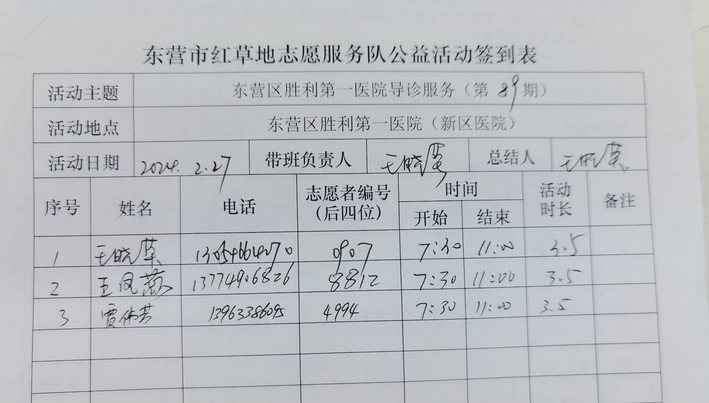 东营市红草地志愿服务队公益活动签到表
活动主题 东营区胜利第一医院导诊服务（第89期）
活动地点 东营区胜利第一医院（新区医院）
活动日期 2024.2.27 带班负责人 王晓英 总结人 王晓英
序号 姓名 电话 志愿者编号（后四位） 时间 开始 结束 活动时长 备注
1 王晓英 13054664270 0907 7:30 11:00 3.5
2 王凤燕 13774906826 8812 7:30 11:00 3.5
3 贾伟芳 13963386095 4994 7:30 11:00 3.5